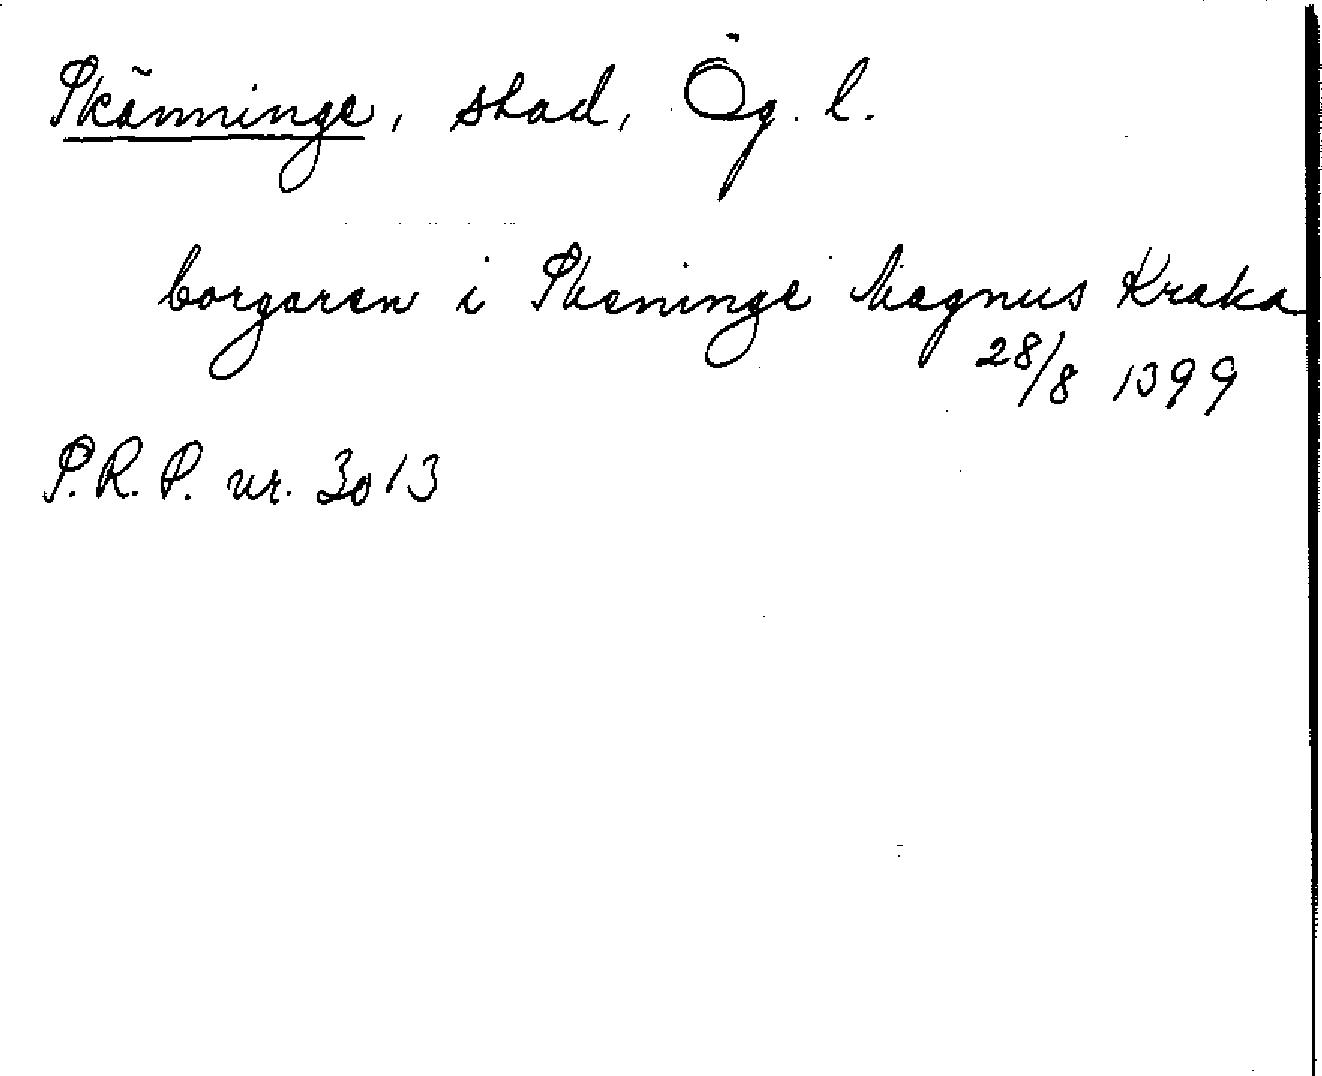 Skänninge, stad, Ög. l.
borgaren i Skeninge Magnus Kraka
28/8 1399
S.R.P. nr. 3013